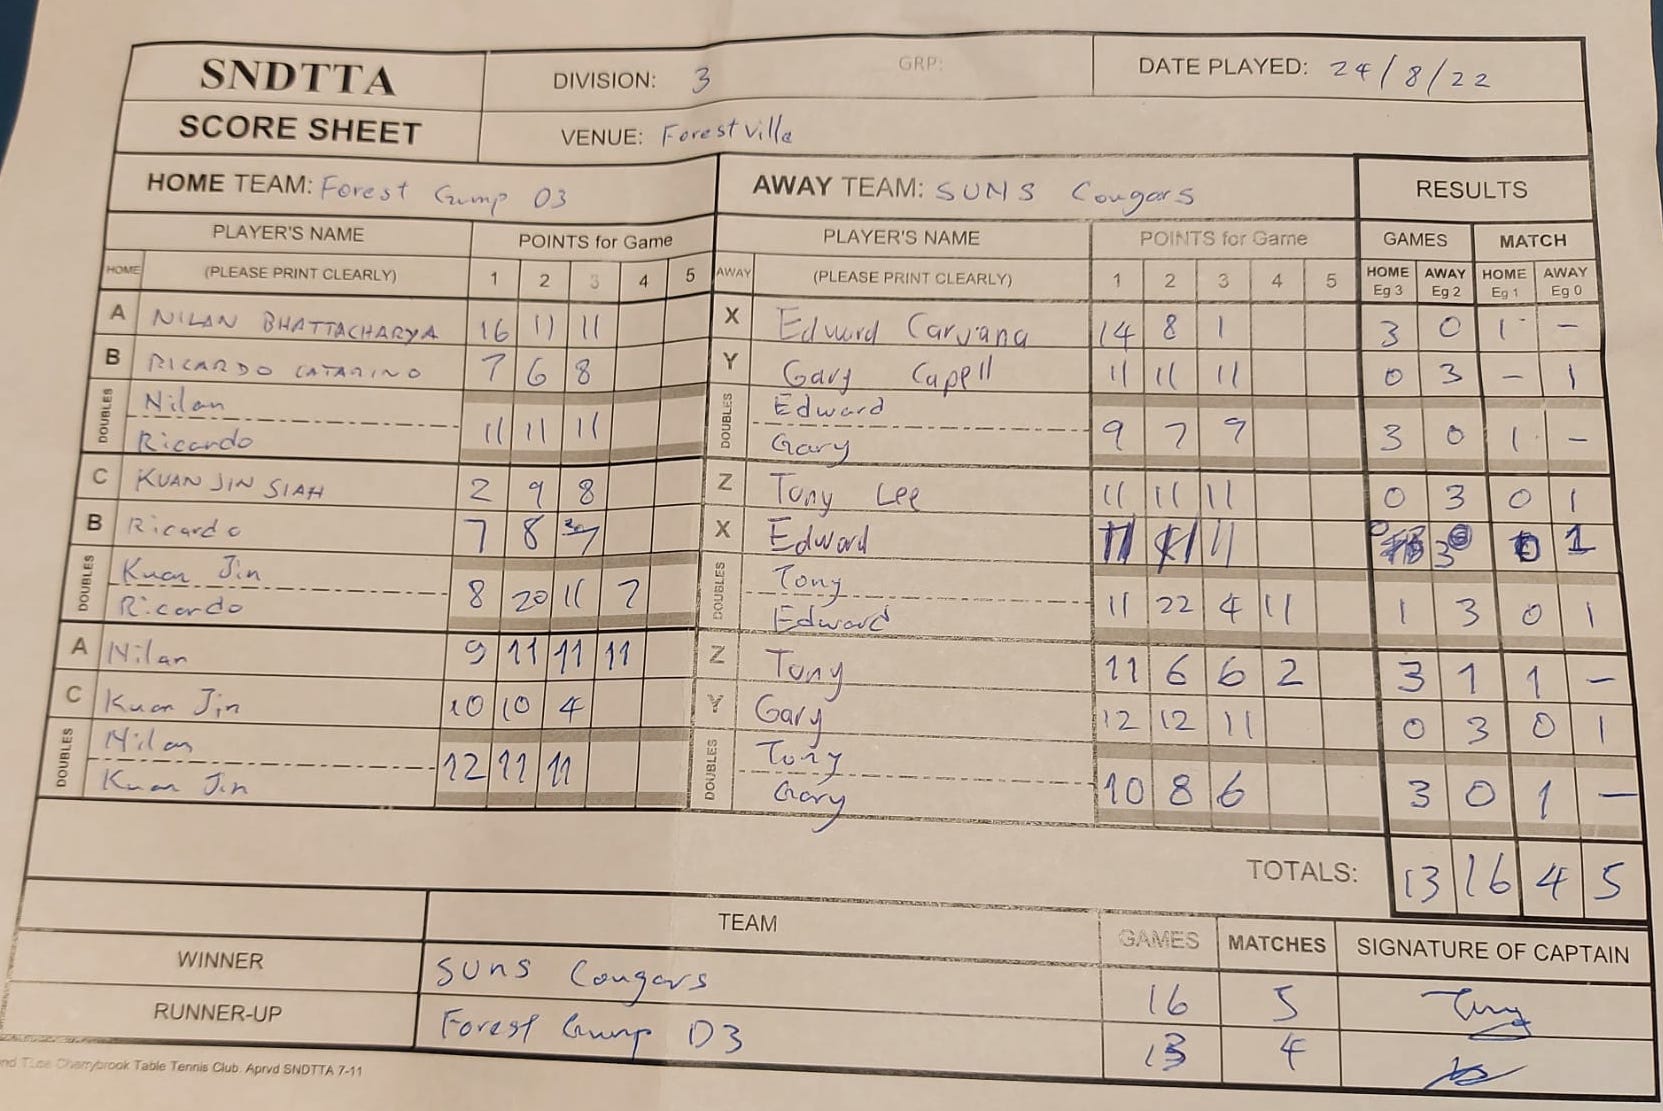 SNDTTA DIVISION: 3 GRP: DATE PLAYED: 24/8/22
SCORE SHEET VENUE: Forestville
HOME TEAM: Forest Gump D3 AWAY TEAM: SUNS Cougars RESULTS
PLAYER'S NAME POINTS for Game PLAYER'S NAME POINTS for Game GAMES MATCH
HOME (PLEASE PRINT CLEARLY) 1 2 3 4 5 AWAY (PLEASE PRINT CLEARLY) 1 2 3 4 5 HOME Eg 3 AWAY Eg 2 HOME Eg 1 AWAY Eg 0
A NILAN BHATTACHARYA 16 11 11 X Edward Caruana 14 8 1 3 0 1 -
B RICARDO CATARINO 7 6 8 Y Gary Capell 11 11 11 0 3 - 1
DOUBLES Nilan DOUBLES Edward
Ricardo 11 11 11 Gary 9 7 9 3 0 1 -
C KUAN JIN SIAH 2 9 8 Z Tony Lee 11 11 11 0 3 0 1
B Ricardo 7 8 7 X Edward 11 11 11 0 3 0 1
DOUBLES Kuan Jin DOUBLES Tony
Ricardo 8 20 11 7 Edward 11 22 4 11 1 3 0 1
A Nilan 9 11 11 11 Z Tony 11 6 6 2 3 1 1 -
C Kuan Jin 10 10 4 Y Gary 12 12 11 0 3 0 1
DOUBLES Nilan DOUBLES Tony
Kuan Jin 12 11 11 Gary 10 8 6 3 0 1 -
TOTALS: 13 16 4 5
TEAM GAMES MATCHES SIGNATURE OF CAPTAIN
WINNER Suns Cougars 16 5 Tony
RUNNER-UP Forest Gump D3 13 4
Cherrybrook Table Tennis Club. Aprvd SNDTTA 7-11